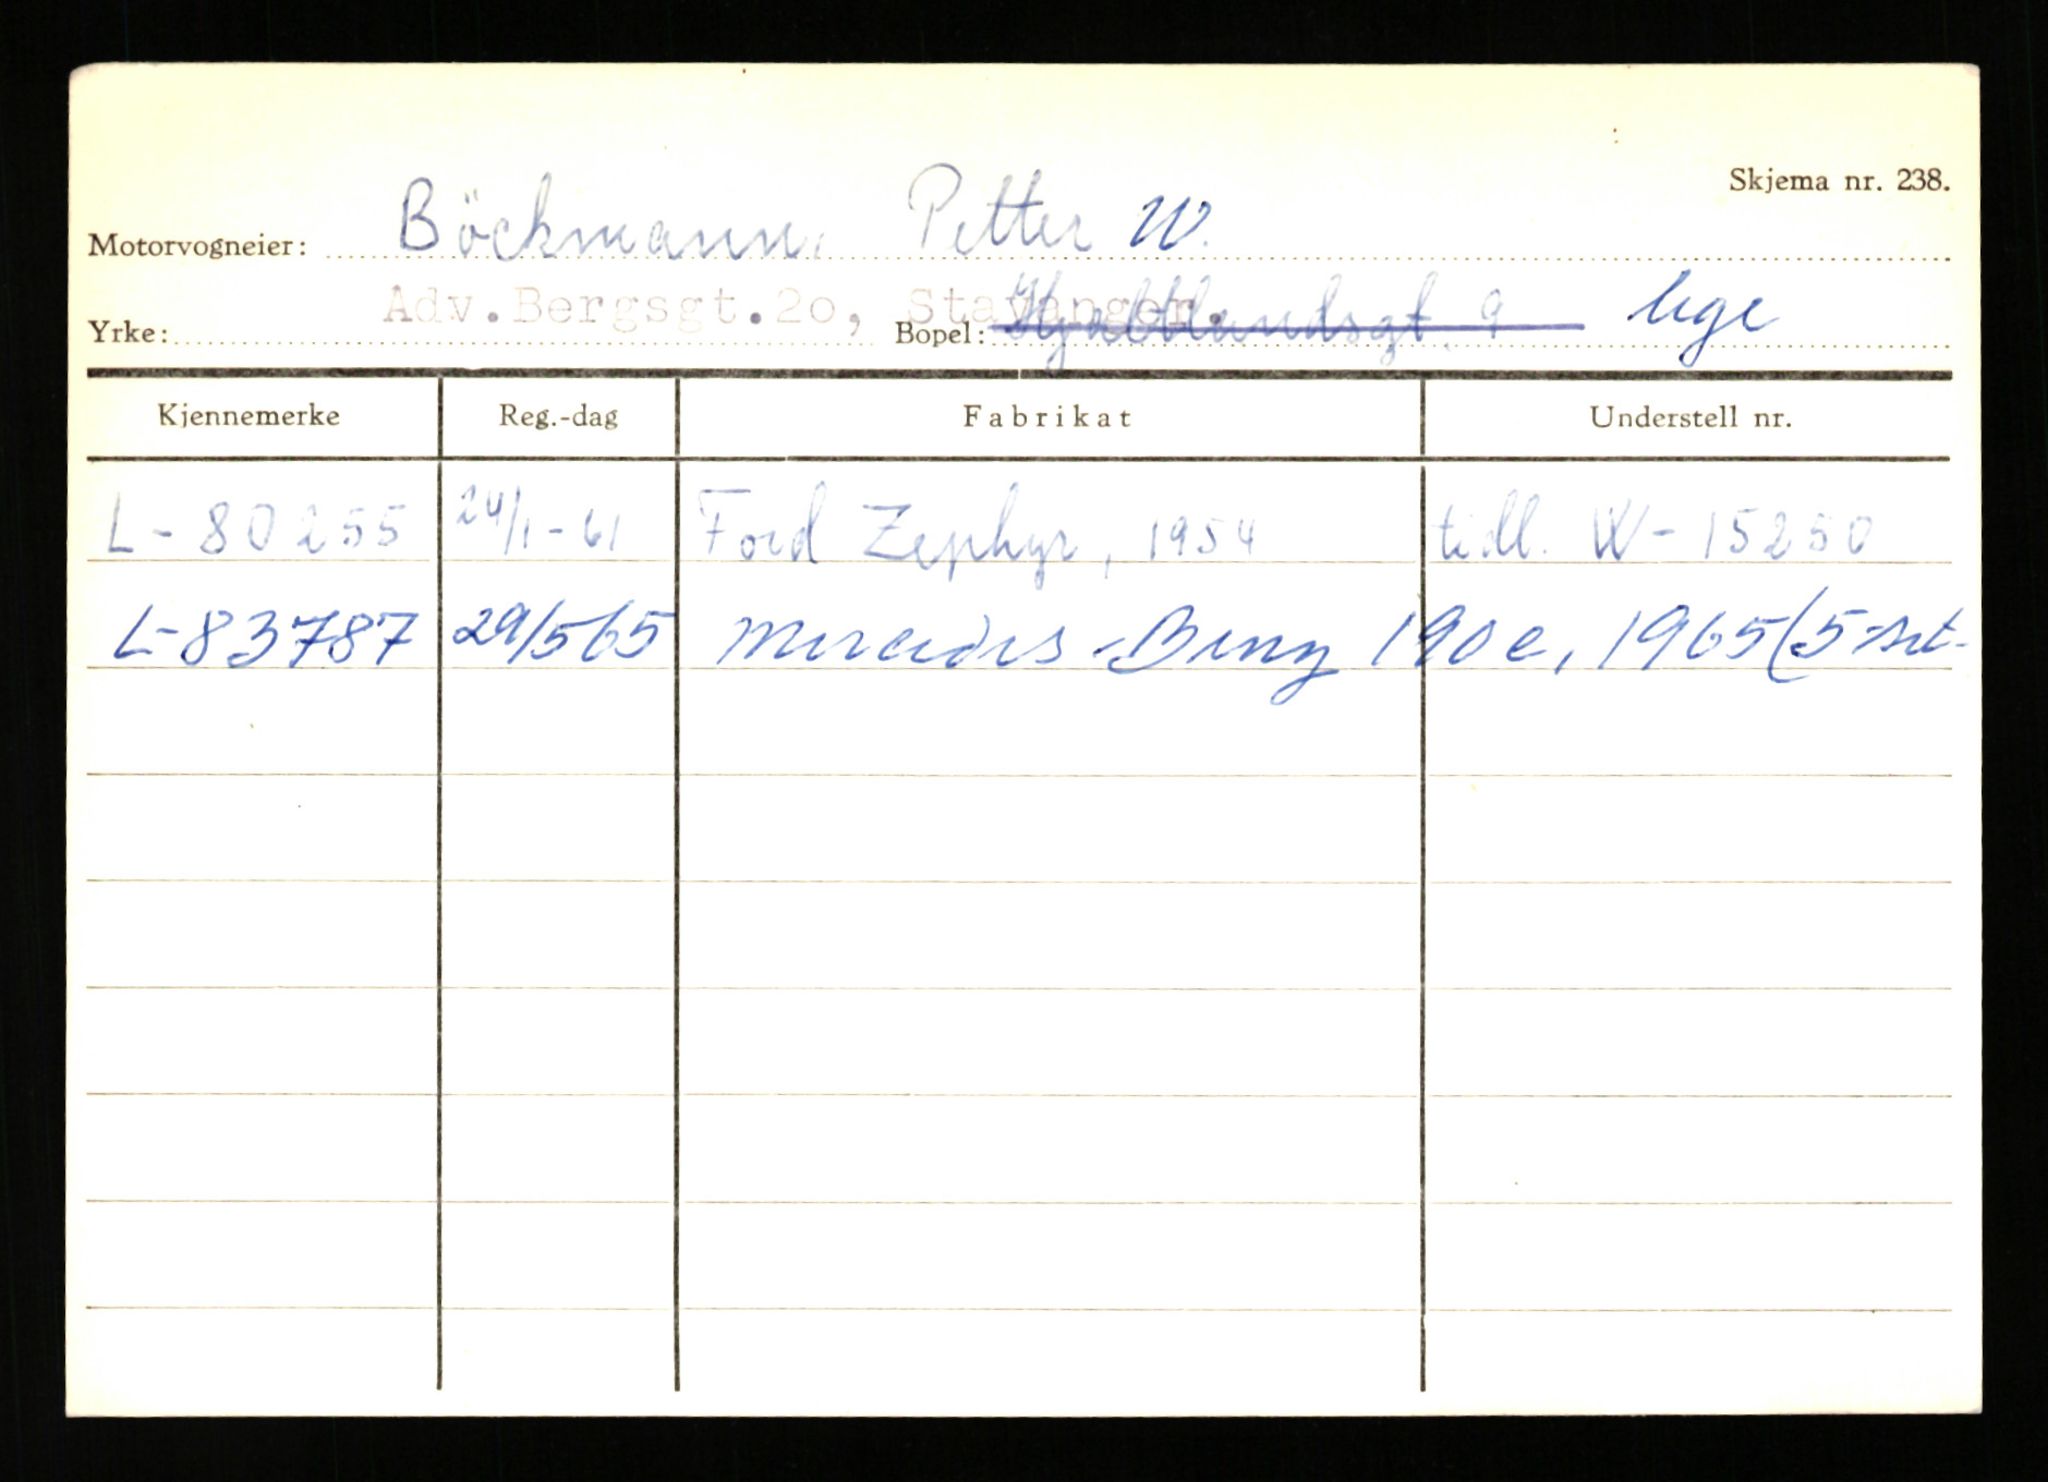 Skjema nr. 238.
Motorvogneier: Böckmann, Petter W.
Adv.Bergsgt.2o, Stavanger.
Yrke: Bopel: Hjaltlandsgt. 9 lege
Kjennemerke Reg.-dag Fabrikat Understell nr.
L-80255 24/1-61 Ford Zephyr, 1954 tidl. W-15250
L-83787 29/5 65 Mercedes-Benz 190c, 1965 (5 set.